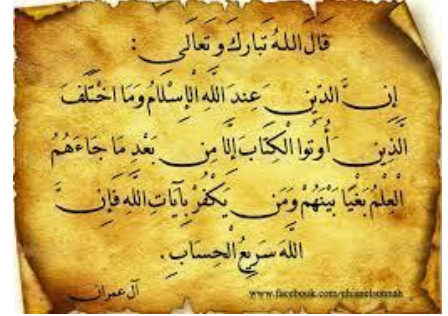 قَالَ اللهُ تَبَارَكَ وَ تَعَالَى :
إِنَّ الدِّينَ عِندَ اللَّهِ الْإِسْلَامُ وَمَا اخْتَلَفَ
الَّذِينَ أُوتُوا الْكِتَابَ إِلَّا مِن بَعْدِ مَا جَاءَهُمُ
الْعِلْمُ بَغْيًا بَيْنَهُمْ وَمَن يَكْفُرْ بِآيَاتِ اللَّهِ فَإِنَّ
اللَّهَ سَرِيعُ الْحِسَابِ.
آل عمران